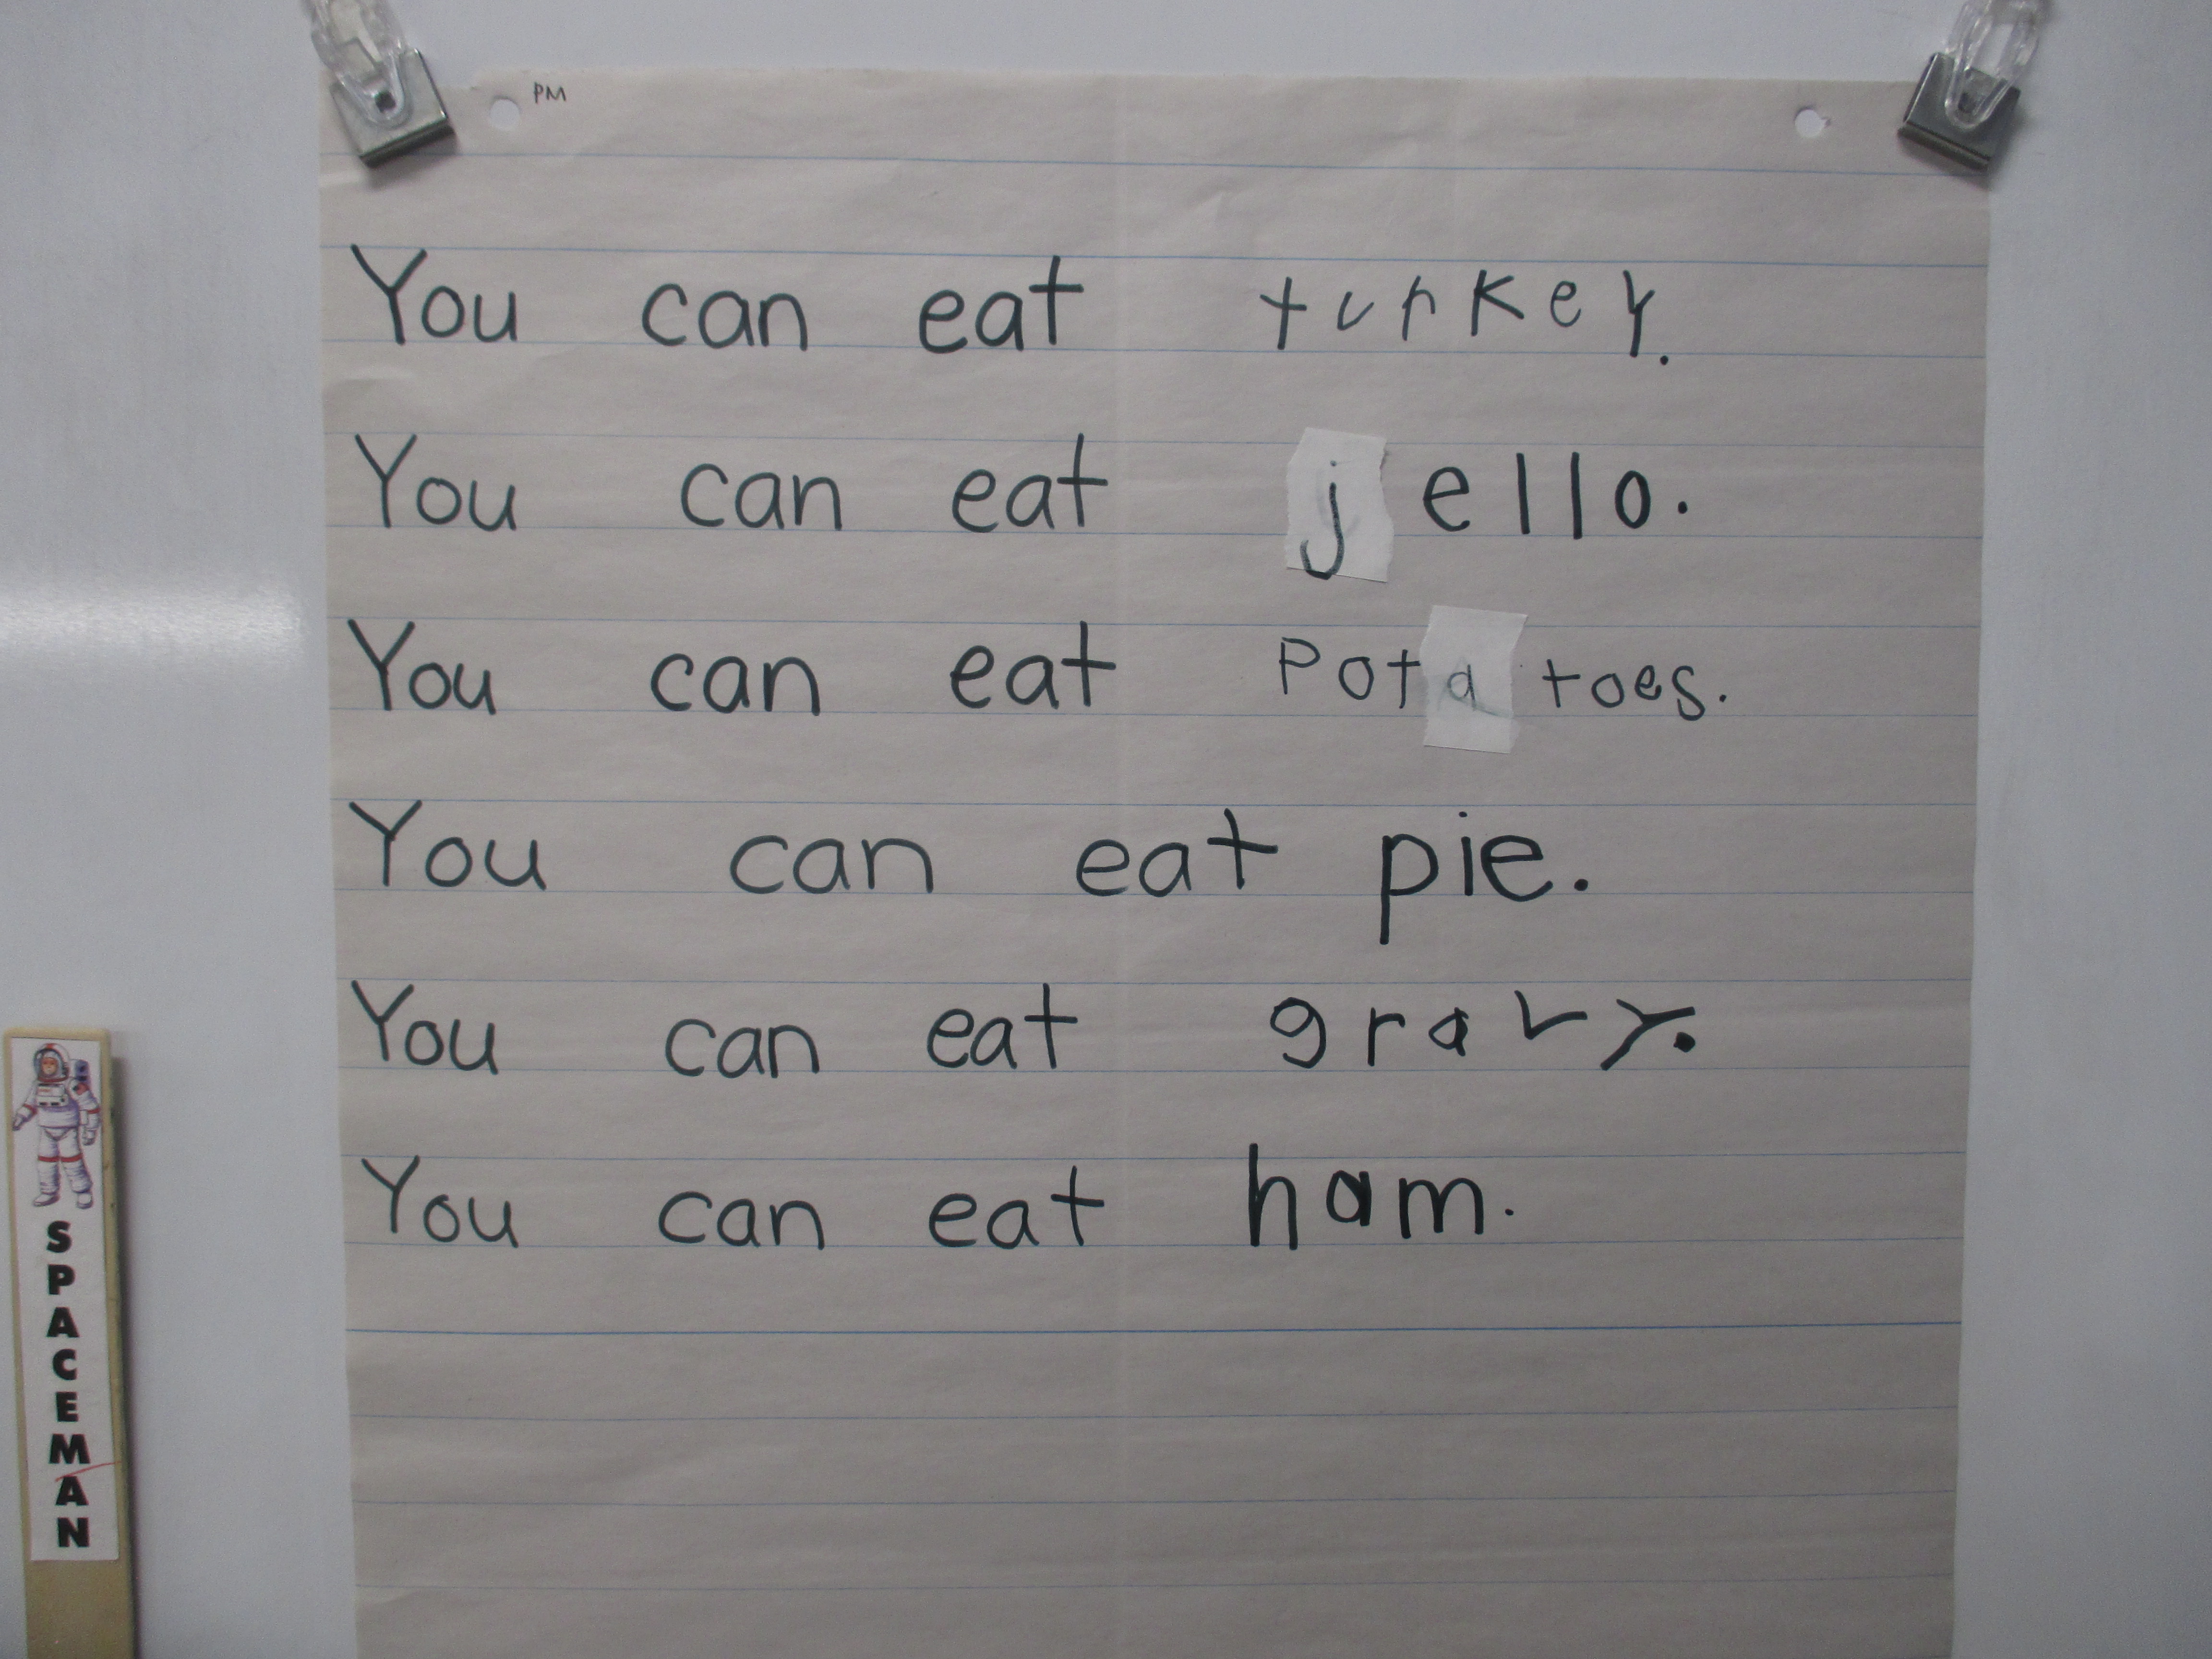 PM
You can eat turkey.
You can eat jello.
You can eat Potatoes.
You can eat pie.
You can eat gravy.
You can eat ham.
SPACEMAN